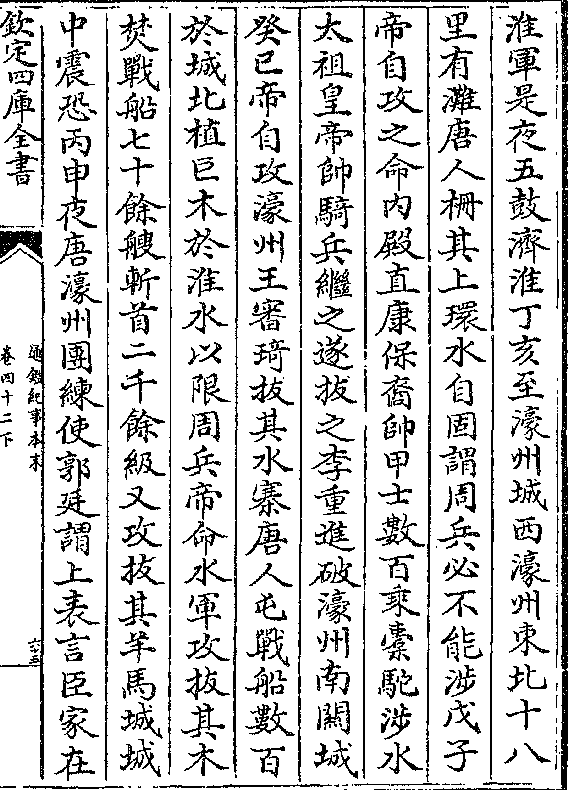 淮軍是夜五鼓濟淮丁亥至濠州城西濠州東北十八
里有灘唐人柵其上環水自固謂周兵必不能涉戊子
帝自攻之命內殿直康保裔帥甲士數百乘橐駝涉水
太祖皇帝帥騎兵繼之遂拔之李重進破濠州南關城
癸巳帝自攻濠州王審琦拔其水寨唐人屯戰船數百
於城北植巨木於淮水以限周兵帝命水軍攻拔其木
焚戰船七十餘艘斬首二千餘級又攻拔其羊馬城城
中震恐丙申夜唐濠州團練使郭廷謂上表言臣家在
欽定四庫全書
通鑑紀事本末
卷四十二下
六五